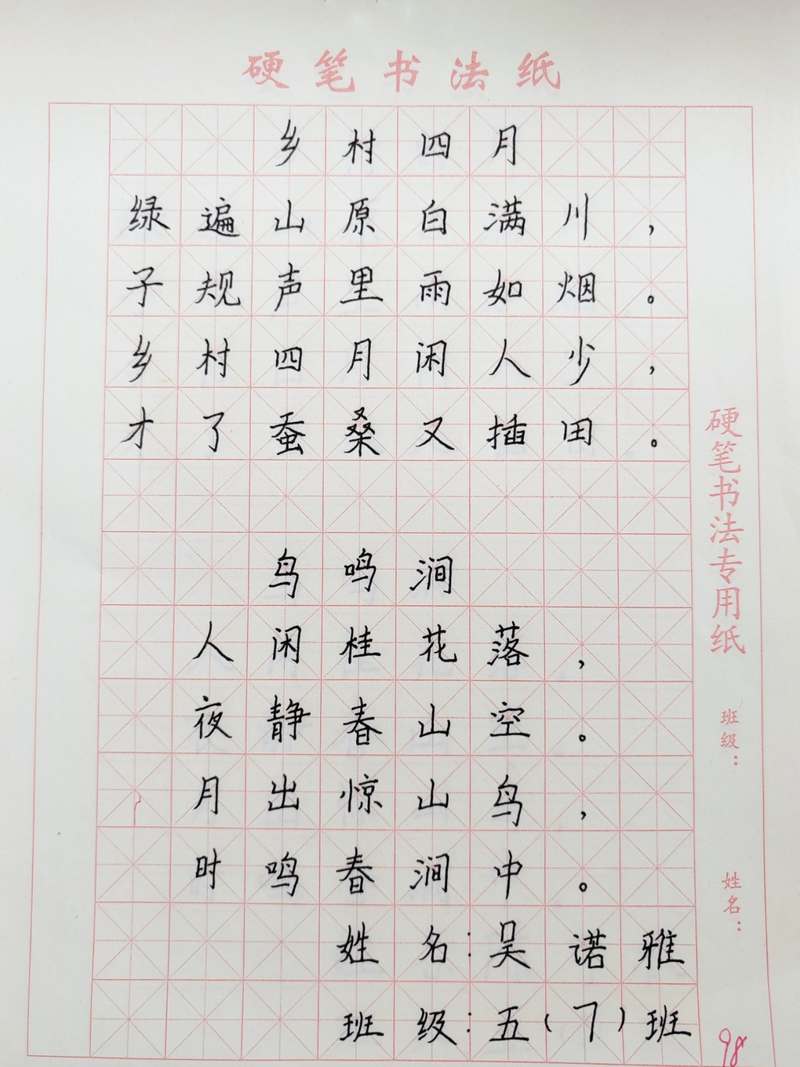 硬笔书法纸
乡村四月
绿遍山原白满川，
子规声里雨如烟。
乡村四月闲人少，
才了蚕桑又插田。
鸟鸣涧
人闲桂花落，
夜静春山空。
月出惊山鸟，
时鸣春涧中。
姓名：吴诺雅
班级：五（7）班
硬笔书法专用纸
班级：
姓名：
98